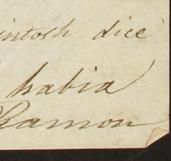 intosh dice
habia
Ramon